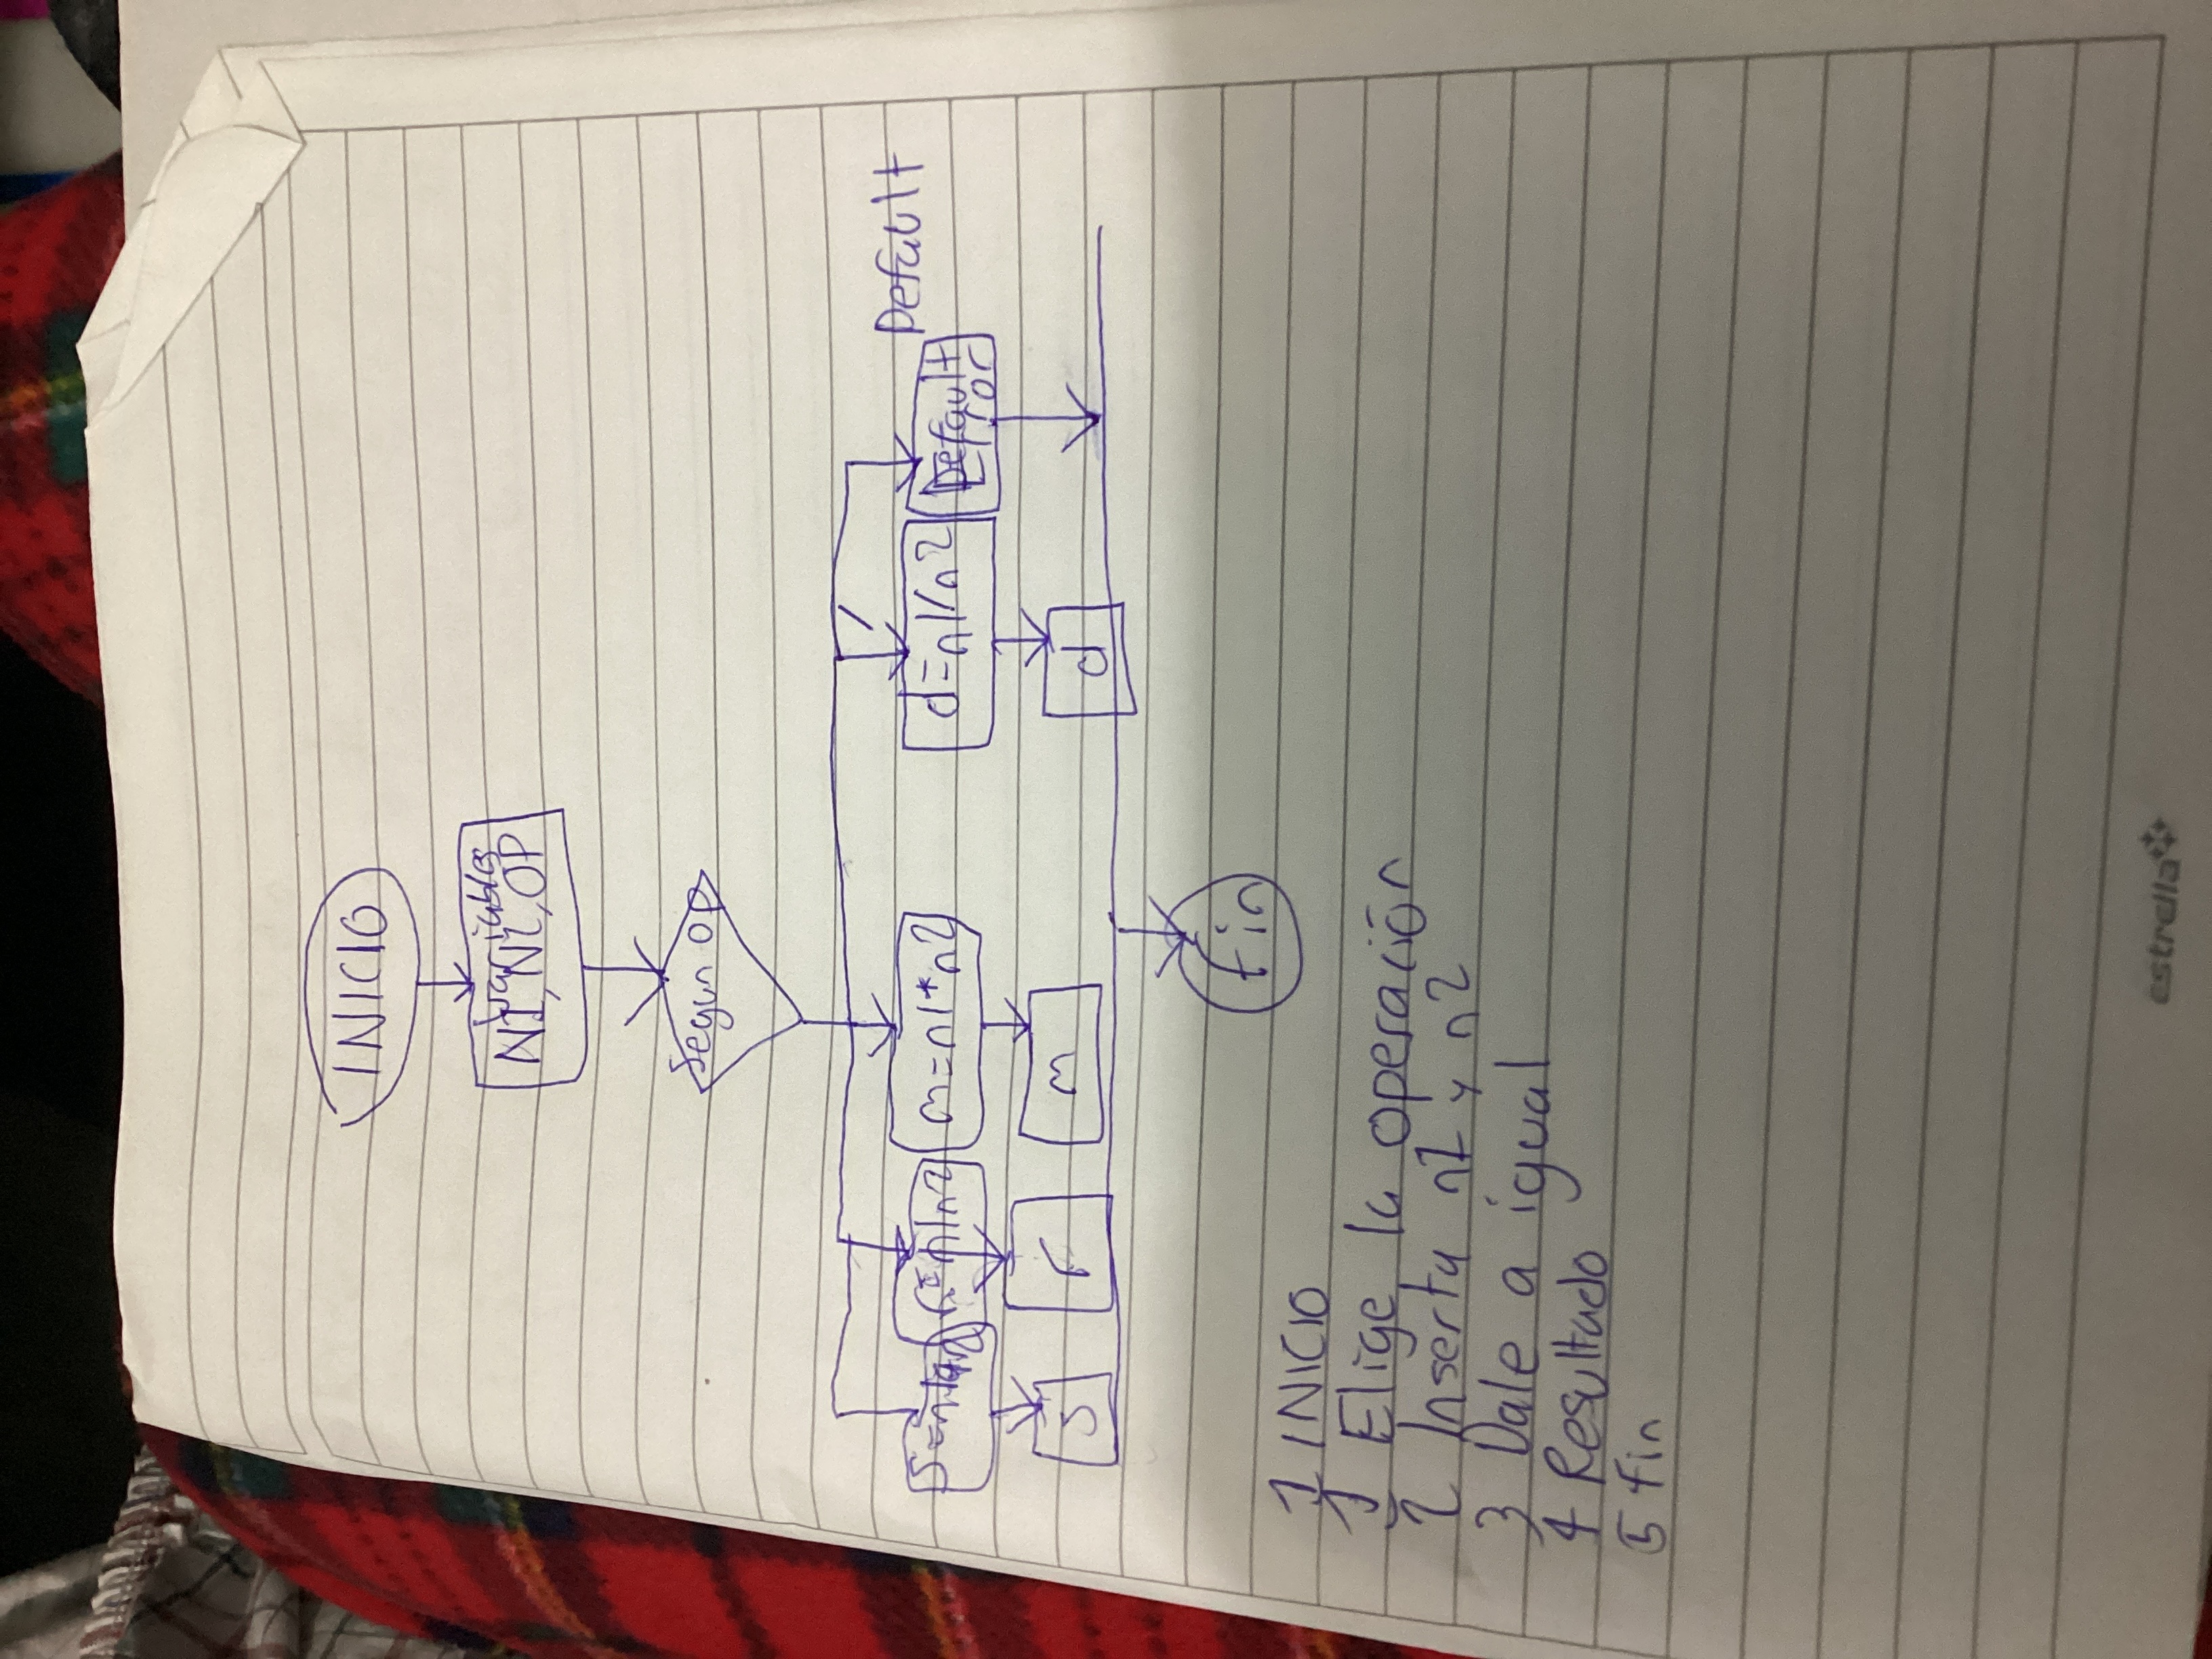 INICIO
variables
N1, N2, OP
Segun OP
Default
r=n1n2
m=n1*n2
/
d=n1/n2
Default
s
r
m
d
fin
1 INICIO
1 Elige la operación
2 Inserta n1 y n2
3 Dale a igual
4 Resultado
5 fin
estrella